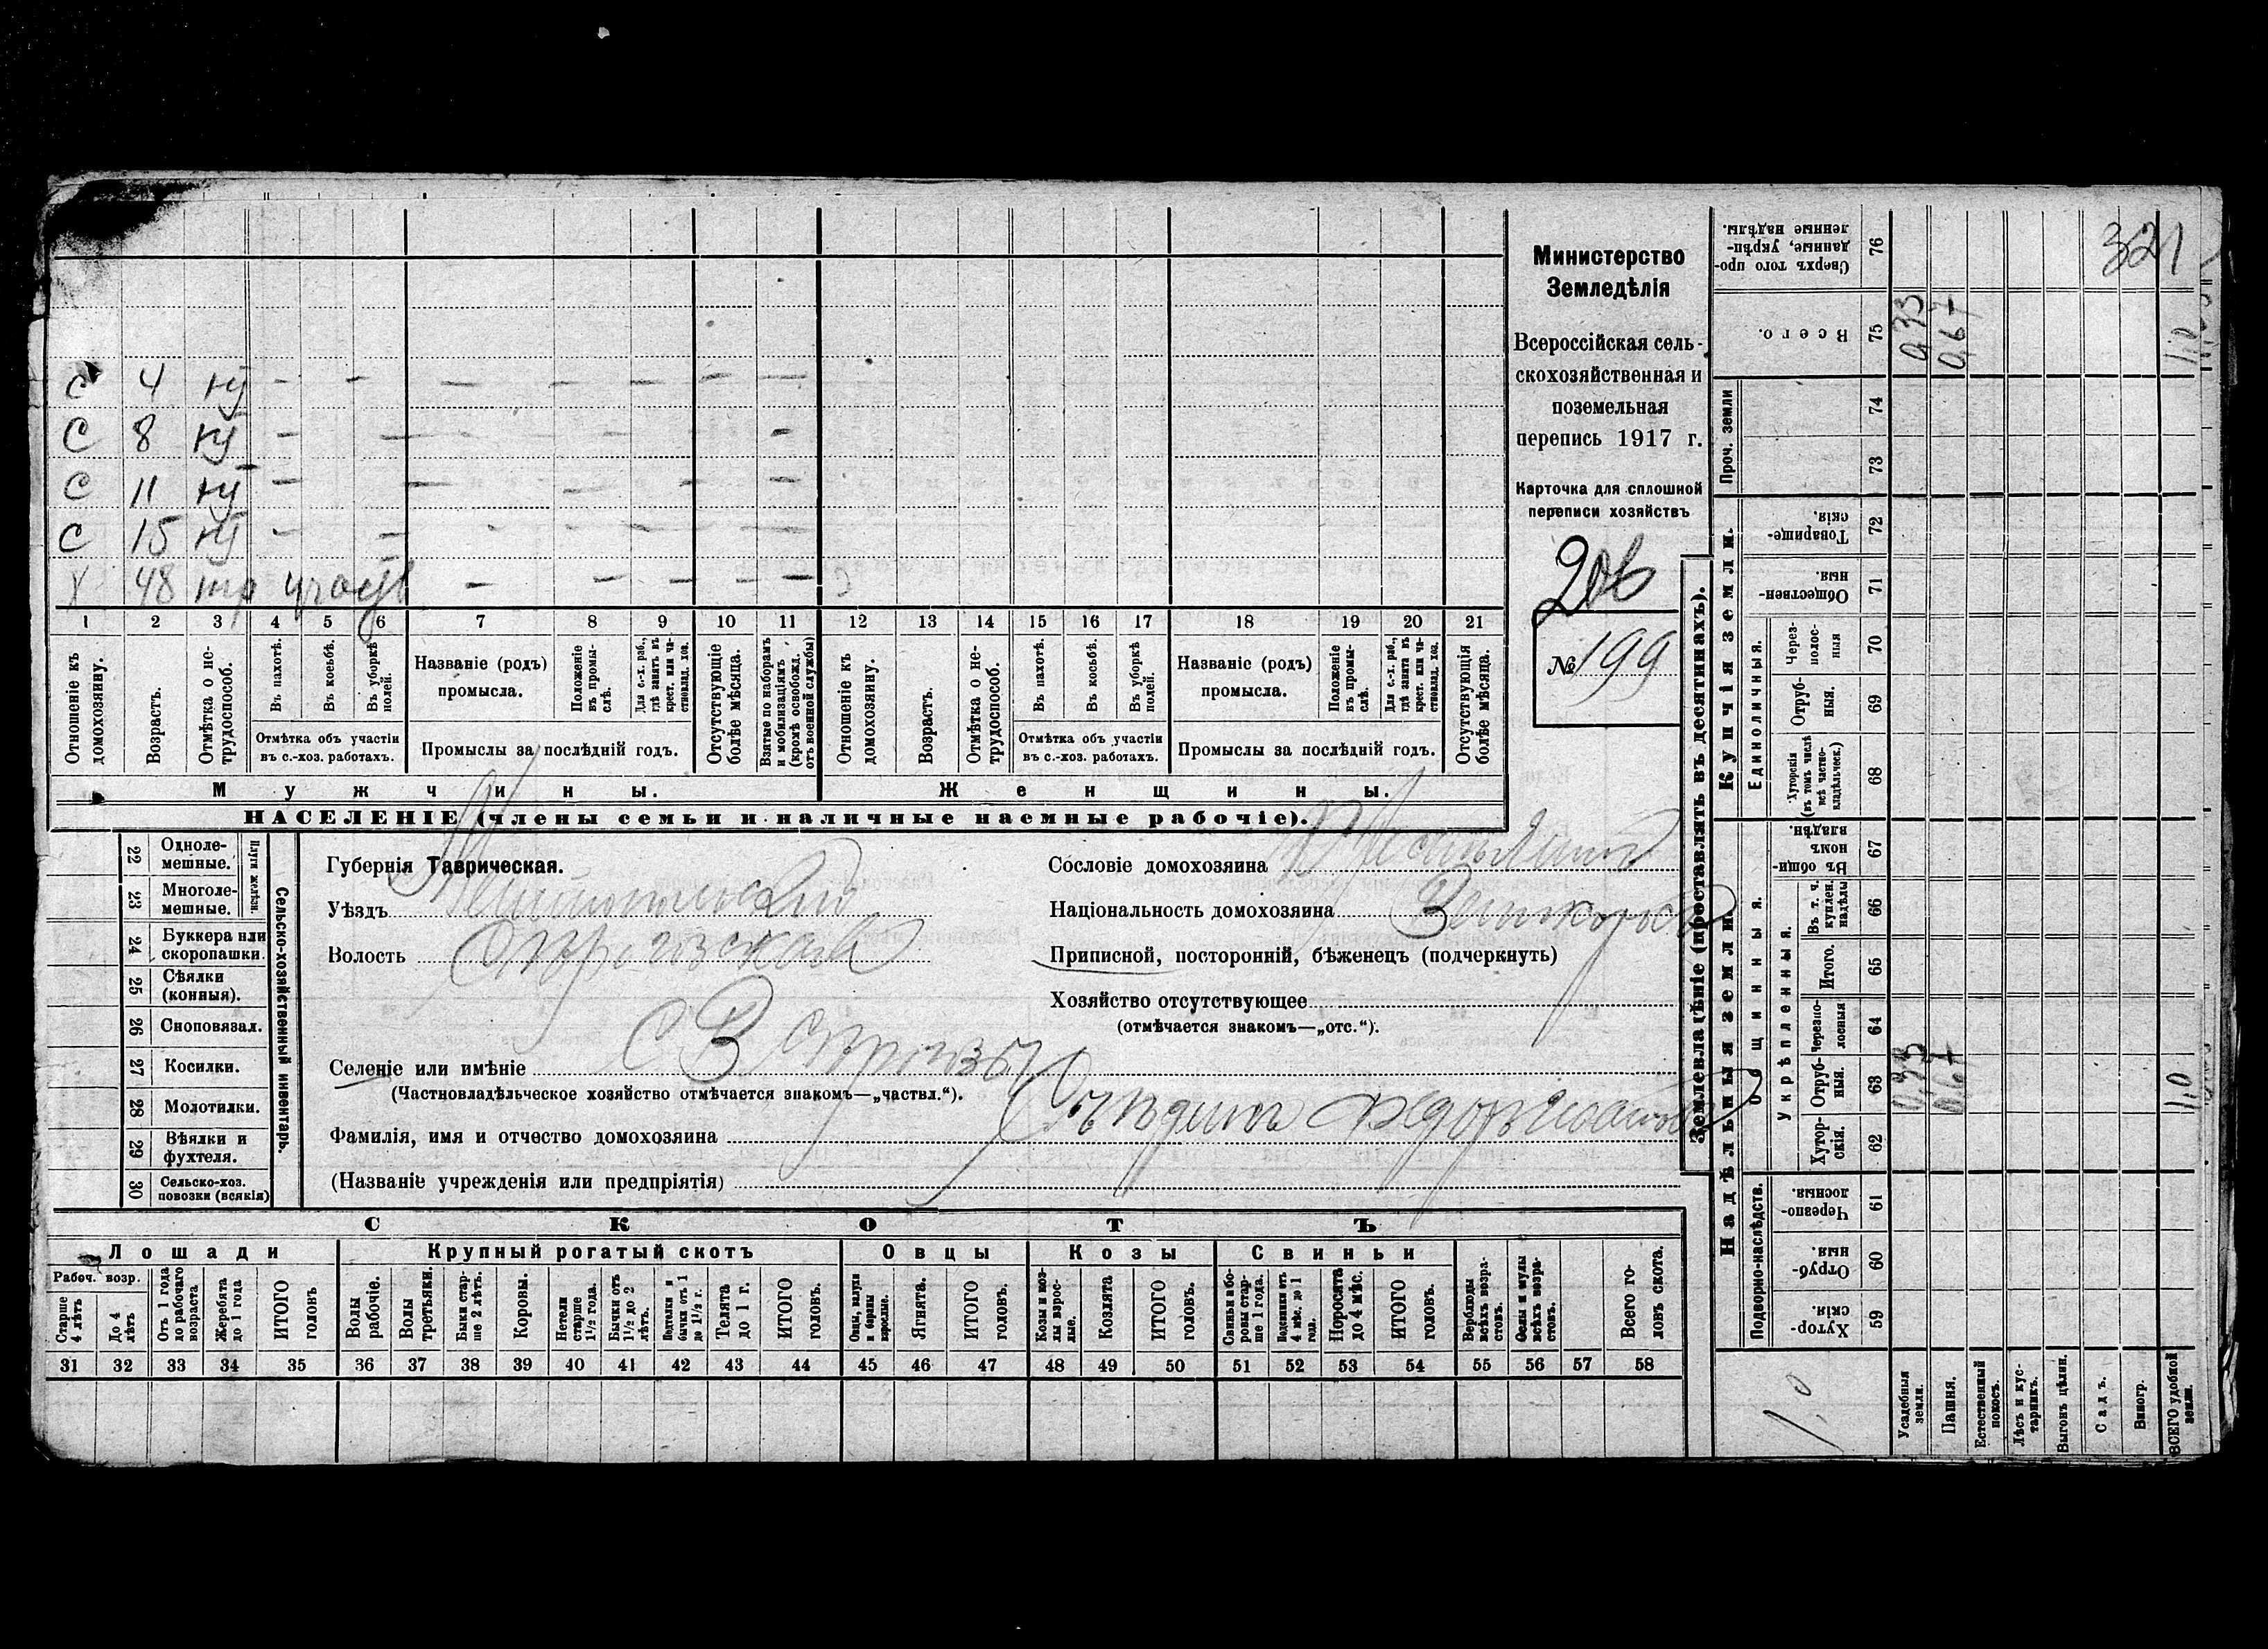 С 4 н - - - - - - -
С 8 н - - - - - -
С 11 н - - - - -
С 15 н - - - - - -
Х 48 тр - - - - -
1 2 3 4 5 6 7 8 9 10 11 12 13 14 15 16 17 18 19 20 21
Отношеніе къ домохозяину.
Возрастъ.
Отмѣтка о не-
трудоспособ.
Въ пахотѣ.
Въ косьбѣ.
Въ уборкѣ полей.
Отмѣтка объ участіи
въ с.-хоз. работахъ.
Названіе (родъ)
промысла.
Положеніе въ промы-
слѣ.
Для с.-х. раб., гдѣ занятъ въ крест. или ча-
стновлад. хоз.
Промыслы за послѣдній годъ.
Отсутствующіе болѣе мѣсяца.
Взятые по наборамъ и мобилизаціямъ (кромѣ освобожд. отъ военной службы)
Отношеніе къ домохозяину.
Возрастъ.
Отмѣтка о не-
трудоспособ.
Въ пахотѣ.
Въ косьбѣ.
Въ уборкѣ полей.
Отмѣтка объ участіи
въ с.-хоз. работахъ.
Названіе (родъ)
промысла.
Положеніе въ промы-
слѣ.
Для с.-х. раб., гдѣ занята въ крест. или ча-
стновлад. хоз.
Промыслы за послѣдній годъ.
Отсутствующія болѣе мѣсяца.
Мужчины.
Женщины.
НАСЕЛЕНІЕ (члены семьи и наличные наемные рабочіе).
Министерство
Земледѣлія
Всероссійская сель-
скохозяйственная и
поземельная
перепись 1917 г.
Карточка для сплошной
переписи хозяйствъ
206
№ 199
22 Однole-
мешные.
23 Многоле-
мешные.
Плуги желѣзн.
24 Буккера или
скоропашки.
25 Сѣялки
(конныя).
26 Сноповязал.
27 Косилки.
28 Молотилки.
29 Вѣялки и
фухтеля.
30 Сельско-хоз.
повозки (всякія)
Сельско-хозяйственный инвентарь.
Губернія Таврическая.
Уѣздъ Мелитопольскій
Волость
Селеніе или имѣніе С
(Частновладѣльческое хозяйство отмѣчается знакомъ—„частвл.“).
Фамилія, имя и отчество домохозяина
(Названіе учрежденія или предпріятія)
Сословіе домохозяина
Національность домохозяина Великоросъ
Приписной, посторонній, бѣженецъ (подчеркнуть)
Хозяйство отсутствующее
(отмѣчается знакомъ—„отс.“).
СКОТЪ
Лошади
Крупный рогатый скотъ
Овцы
Козы
Свиньи
Рабоч. возр.
Старше 4 лѣтъ
До 4 лѣтъ
Отъ 1 года до рабочаго возраста
Жеребята до 1 года
ИТОГО головъ
Волы рабочіе.
Волы третьяки.
Быки стар-
ше 2 лѣтъ.
Коровы.
Нетели старше 1½ года.
Бычки отъ 1½ до 2 лѣтъ.
Подтелки и бычки отъ 1 до 1½ г.
Телята до 1 г.
ИТОГО головъ.
Овцы, валухи и бараны взрослые.
Ягнята.
ИТОГО головъ.
Козы и коз-
лы взрос-
лые.
Козлята
ИТОГО головъ.
Свиньи и бо-
ровы стар-
ше 1 года.
Подсвинки отъ 4 мѣс. до 1 года.
Поросята до 4 мѣс.
ИТОГО головъ.
Верблюды всѣхъ возра-
стовъ.
Ослы и мулы всѣхъ возра-
стовъ.
Всего го-
ловъ скота.
31 32 33 34 35 36 37 38 39 40 41 42 43 44 45 46 47 48 49 50 51 52 53 54 55 56 57 58
Землевладѣніе (проставлять въ десятинахъ).
Надѣльныя земли.
Купчія земли.
Сверхъ того про-
даяные, укрѣп-
ленные надѣлы. 76
321
Всего. 75 0,33 0,67 1,0
Проч. земли
74
73
Товарище-
скія. 72
Обществен-
ныя. 71
Единоличныя.
Через-
полос-
ныя 70
Отруб-
ныя. 69
Хуторскія (въ томъ числѣ всѣ частно-
владѣльческ.) 68
Общинныя.
Въ общи
номъ
владѣн. 67
Укрѣпленныя.
Въ т. ч. куплен. надѣлы 66
Итого. 65
Черезпо-
лосныя 64
Отруб-
ныя. 63 0,33 0,67 1,0
Хутор-
скія. 62
Подворно-наслѣдств.
Черезпо-
лосныя. 61
Отруб-
ныя. 60
Хутор-
скія. 59
1,0
Усадебныя земли.
Пашня.
Естественный покосъ.
Лѣсъ и кус-
тарникъ.
Выгонъ цѣлин.
Садъ.
Виногр.
ВСЕГО удобной земли.